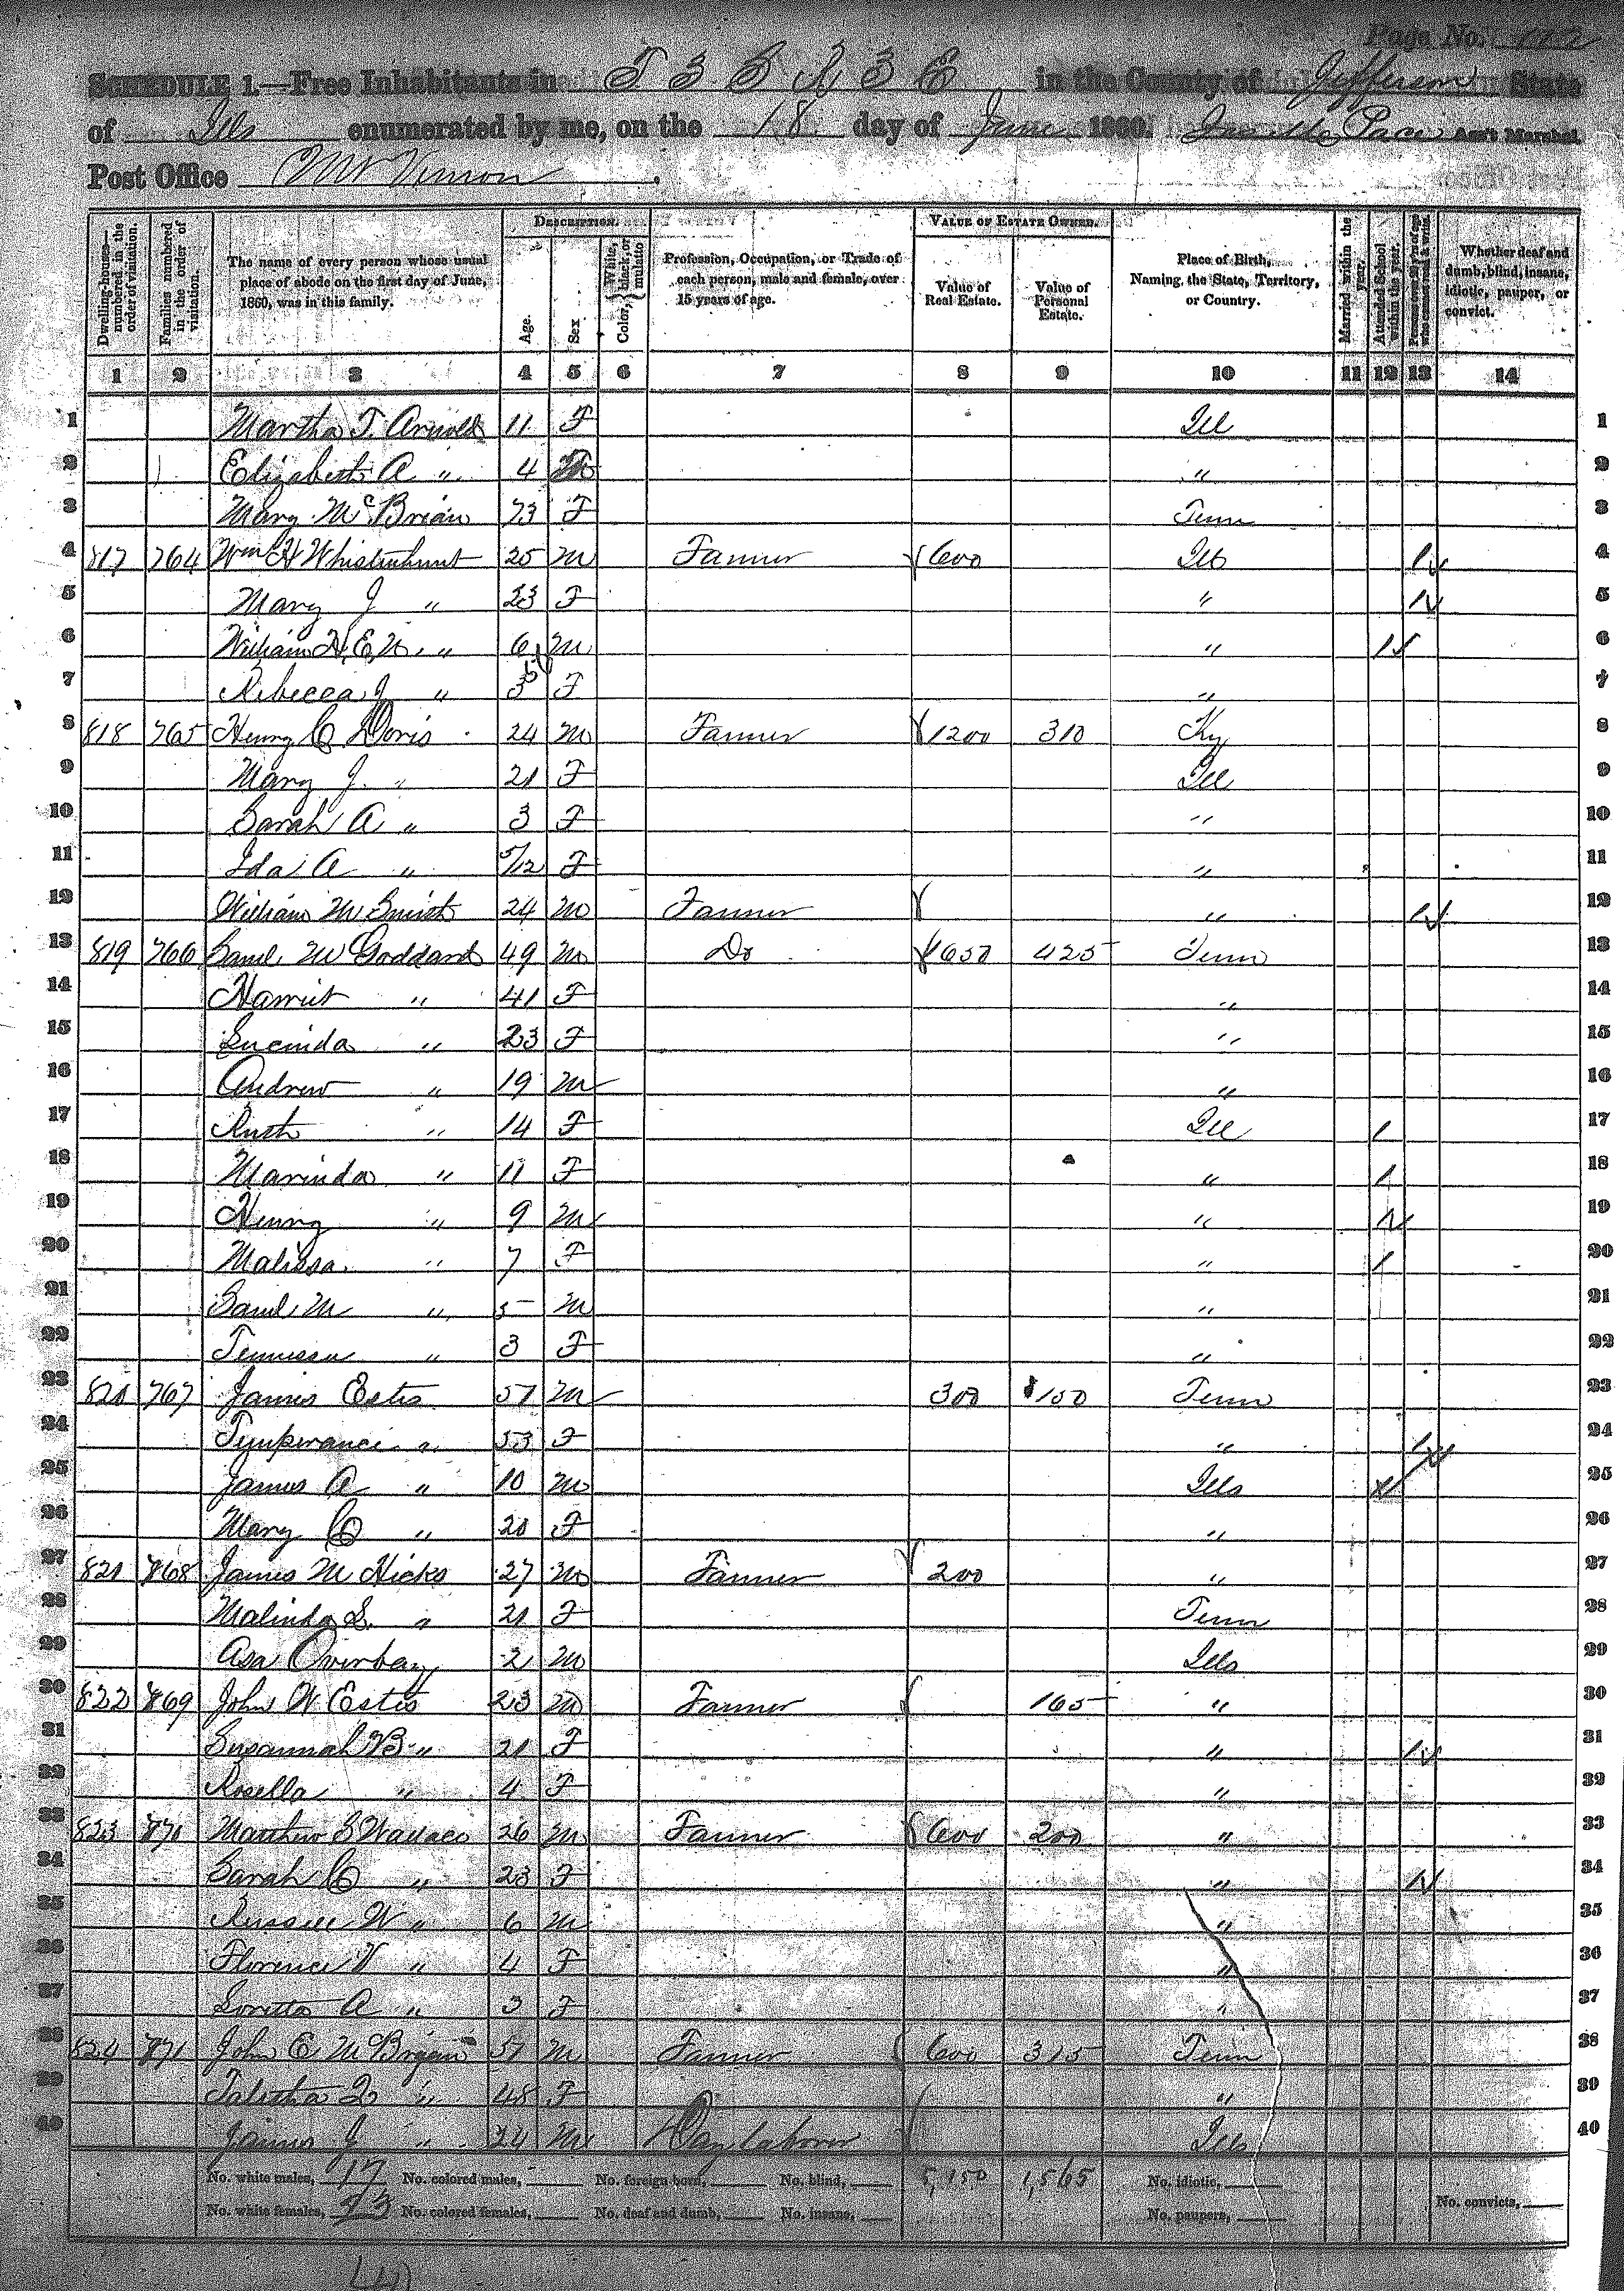 Page No. 112
SCHEDULE 1.—Free Inhabitants in T 3 S R 3 E in the County of Jefferson State
of Ills enumerated by me, on the 18 day of June 1860. Pace Ass't Marshal.
Post Office Mt Vernon
Dwelling-houses—numbered in the order of visitation. Families numbered in the order of visitation. The name of every person whose usual place of abode on the first day of June, 1860, was in this family. DESCRIPTION. Age. Sex Color, White, black, or mulatto Profession, Occupation, or Trade of each person, male and female, over 15 years of age. VALUE OF ESTATE OWNED. Value of Real Estate. Value of Personal Estate. Place of Birth, Naming the State, Territory, or Country. Married within the year. Attended School within the year. Persons over 20 y'rs of age who cannot read & write. Whether deaf and dumb, blind, insane, idiotic, pauper, or convict.
1 2 3 4 5 6 7 8 9 10 11 12 13 14
1 Martha T. Arnold 11 F Ill 1
2 Elizabeth A " 4 " 2
3 Mary McBrian 73 F Tenn 3
4 817 764 Wm H Whistenhunt 25 M Farmer 600 Ills / 4
5 Mary J " 23 F " / 5
6 William H. E. " 6 M " / 6
7 Rebecca J " F " 7
8 818 765 Henry C Doris 24 M Farmer 1200 310 Ky 8
9 Mary J. " 21 F Ill 9
10 Sarah A " 3 F " 10
11 Ida A " 5/12 F " 11
12 William M Smith 24 M Farmer " / 12
13 819 766 Saml M Goddard 49 M Do 1650 425 Tenn 13
14 Harriet " 41 F " 14
15 Lucinda " 23 F " 15
16 Andrew " 19 M " 16
17 Ruth " 14 F Ill / 17
18 Marinda " 11 F " / 18
19 Henry " 9 M " / 19
20 Malissa " 7 F " / 20
21 Saml M " 5 M " 21
22 Tennessee " 3 F " 22
23 820 767 James Estes 51 M 300 150 Tenn 23
24 Temperance " 53 F " / 24
25 James A " 10 M Ills / 25
26 Mary C " 20 F " 26
27 821 868 James M Hicks 27 M Farmer 200 " 27
28 Malinda S. " 21 F Tenn 28
29 Asa Overbay 2 M Ills 29
30 822 869 John W Estes 23 M Farmer 165 " 30
31 Susannah B " 21 F " / 31
32 Rosella " 4 F " 32
33 823 870 Matthew S Wallace 26 M Farmer 600 200 " 33
34 Sarah C " 23 F " / 34
35 Russell W " 6 M " 35
36 Florence V " 4 F " 36
37 Loretta A " 3 F " 37
38 824 871 John E McBryan 51 M Farmer 600 315 Tenn 38
39 Talitha " 48 F " 39
40 James J " 24 M Day laborer Ills 40
No. white males, 17 No. colored males, No. foreign born, No. blind, 5,150 1,565 No. idiotic,
No. white females, 23 No. colored females, No. deaf and dumb, No. insane, No. paupers, No. convicts,